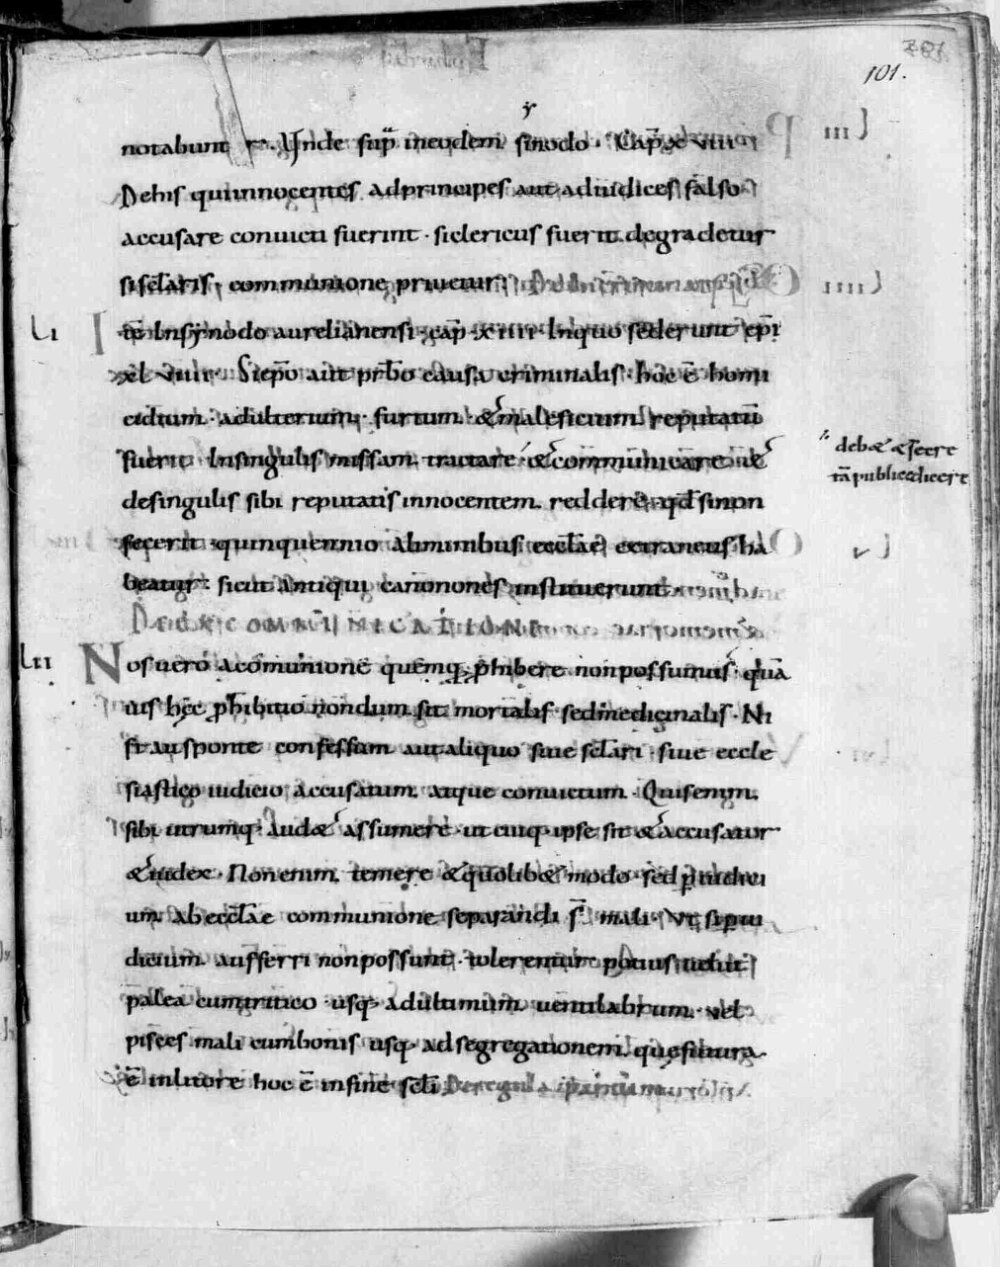 101.
notabunt Unde sup̄ in eodem sinodo. Cap̄ xviiii
De his qui innocentes ad principes aut ad iudices falso
accusare conuicti fuerint. si clericus fuerit degradetur
si sęlaris, communione priuetur;
LI Itē In synodo aurelianensi. cap̄ xiiii. In quo sederunt ep̄i
xl viiii. Si ep̄o aut pr̄bo causa criminalis. hoc ē homi
cidium. adulterium. furtum. & maleficium reputatū
fuerit In singulis missam tractare & commūnicare ue&
deb& & secre
tā publice dicere
de singulis sibi reputatis innocentem reddere. qd̄ si non
fecerit quinquennio ab omnibus eccl̄ae extraneus ha
beatur. sicut antiqui canonones instituerunt
DE EXCOMMUNICATIONE
LII Nos uero a comunione quēmq; p̱hibere non possumus. quā
uis hęc p̱hibitio nondum sit mortalis sed medicinalis. Ni
si aut sponte confessum aut aliquo siue sęlari. siue eccle
siastico iudicio accusatum atque conuictum. Quis enim
sibi utrumq; aud& assumere. ut cuiq; ipse sit & accusator
& iudex. Non enim temere & quolib& modo. sed p̱ iudici
um ab eccl̄ae communione separandi s̄ mali. Ut si p̱ iu
dicium aufferri non possunt. tolerentur potius uelut
palea cum tritico usq; ad ultimum uentilabrum. uel
pisces mali cum bonis usq; ad segregationem quę futura
ē in litore hoc ē in fine sęli De regula
LIII
LIIII
LV